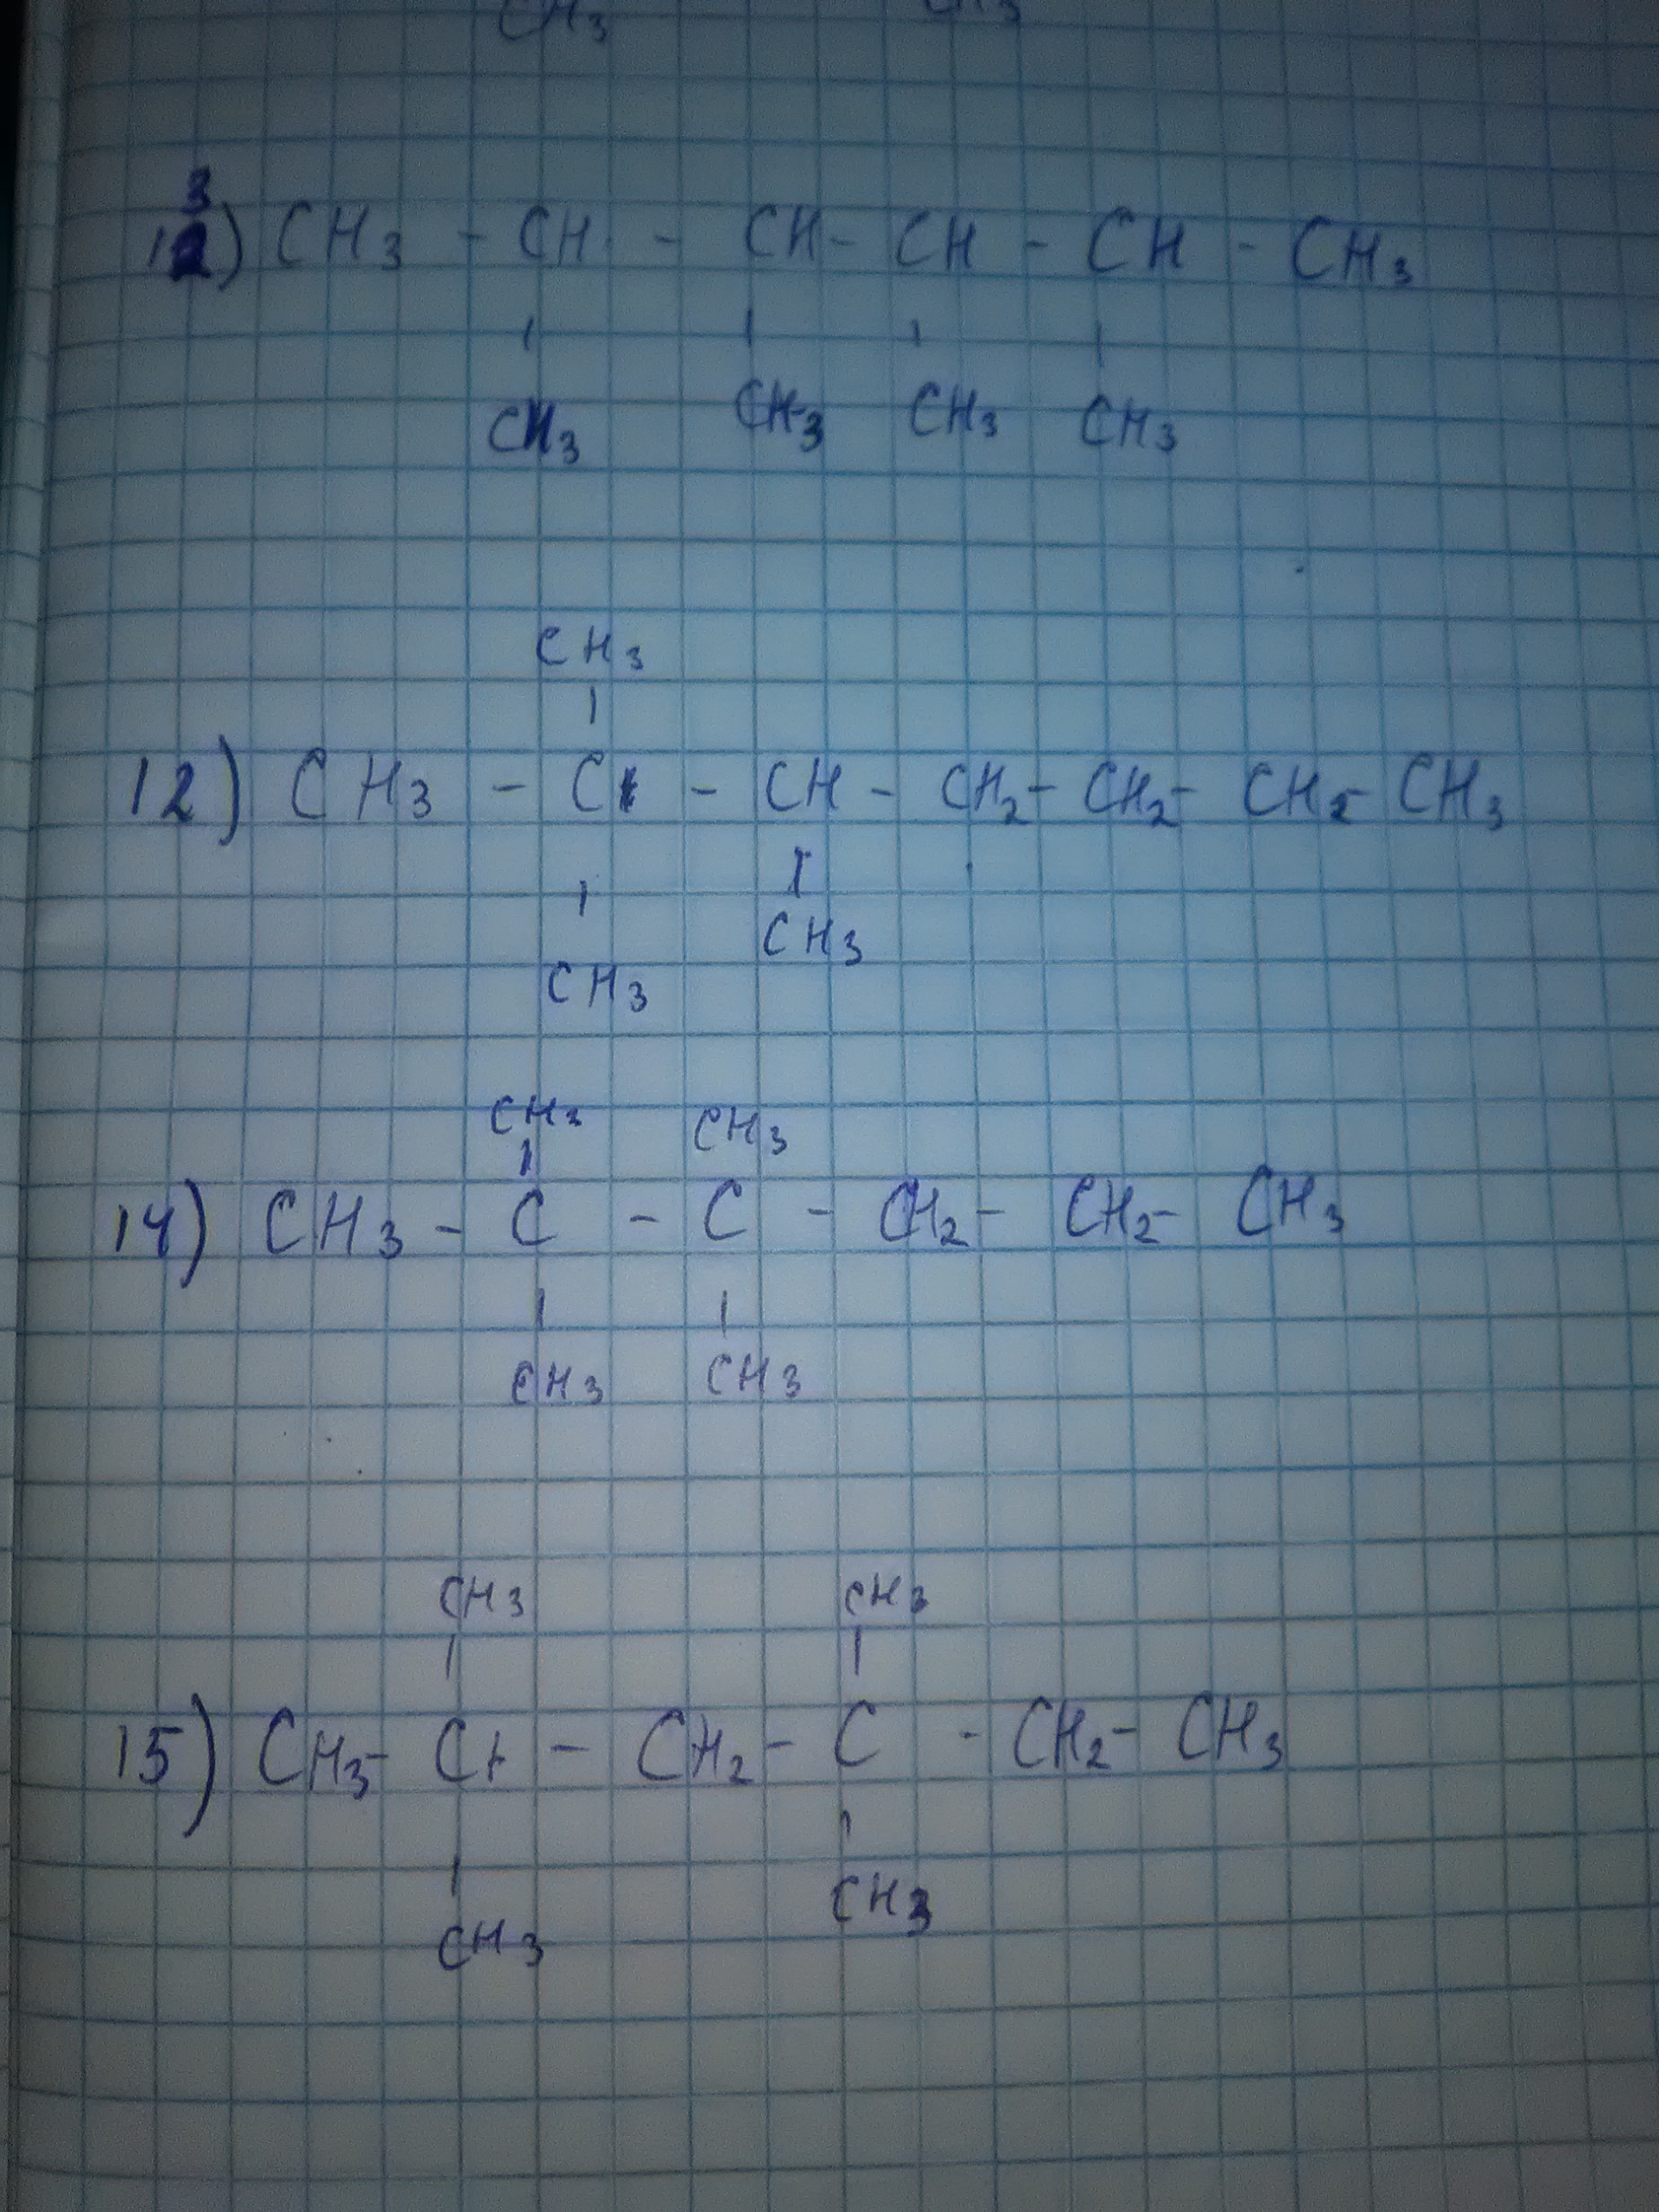 CH3 CH3
13) CH3 - CH - CH - CH - CH - CH3
CH3 CH3 CH3 CH3
CH3
12) CH3 - C - CH - CH2 - CH2 - CH2 - CH3
CH3
CH3
CH3 CH3
14) CH3 - C - C - CH2 - CH2 - CH3
CH3 CH3
CH3 CH3
15) CH3 - C - CH2 - C - CH2 - CH3
CH3
CH3